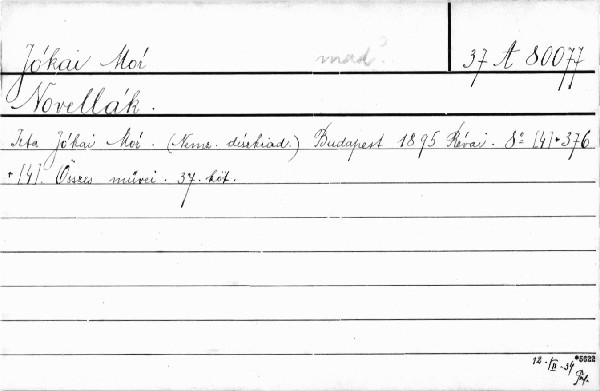 Jókai Mór mad? 37 A 80077
Novellák.
Irta Jókai Mór. (Nemz. diszkiad.) Budapest 1895 Révai. 8° [4]+376
+[4]. Összes művei. 37. köt.
12. VII. 34 *5622